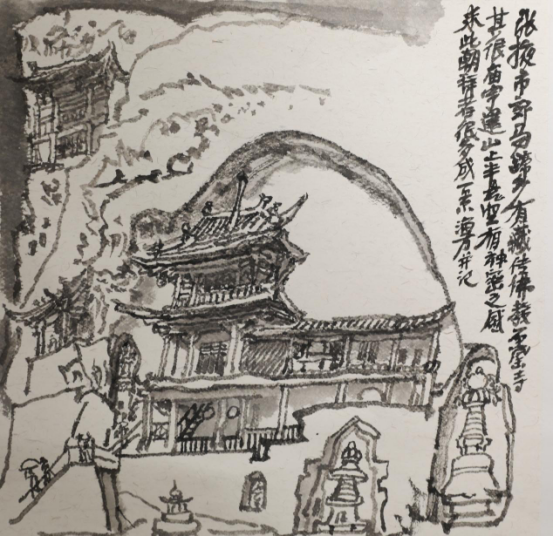 张掖市马蹄乡有藏传佛教寺
其很庙宇建山上半悬空有神密之感
来此朝拜者很多成一景并记